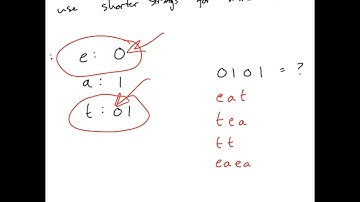 use shorter strings for
: e: 0
a: 1
t: 01
0101 = ?
eat
tea
tt
eaea